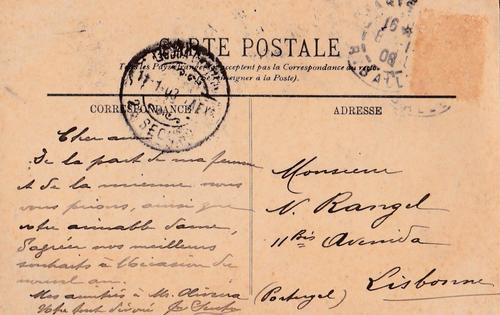 CARTE POSTALE
Tous les Pays étrangers n'acceptent pas la Correspondance au recto.
(Se renseigner à la Poste).
CORRESPONDANCE
ADRESSE
Cher ami
De la part de ma femme
et de la mienne nous
vous prions, ainsi que
votre aimable dame,
d'agréer nos meilleurs
souhaits à l'occasion du
nouvel an.
Mes amitiés à Mr. Oliveira
Votre tout dévoué
Monsieur
N. Rangel
11 bis Avenida
Lisbonne
(Portugal)
16
08